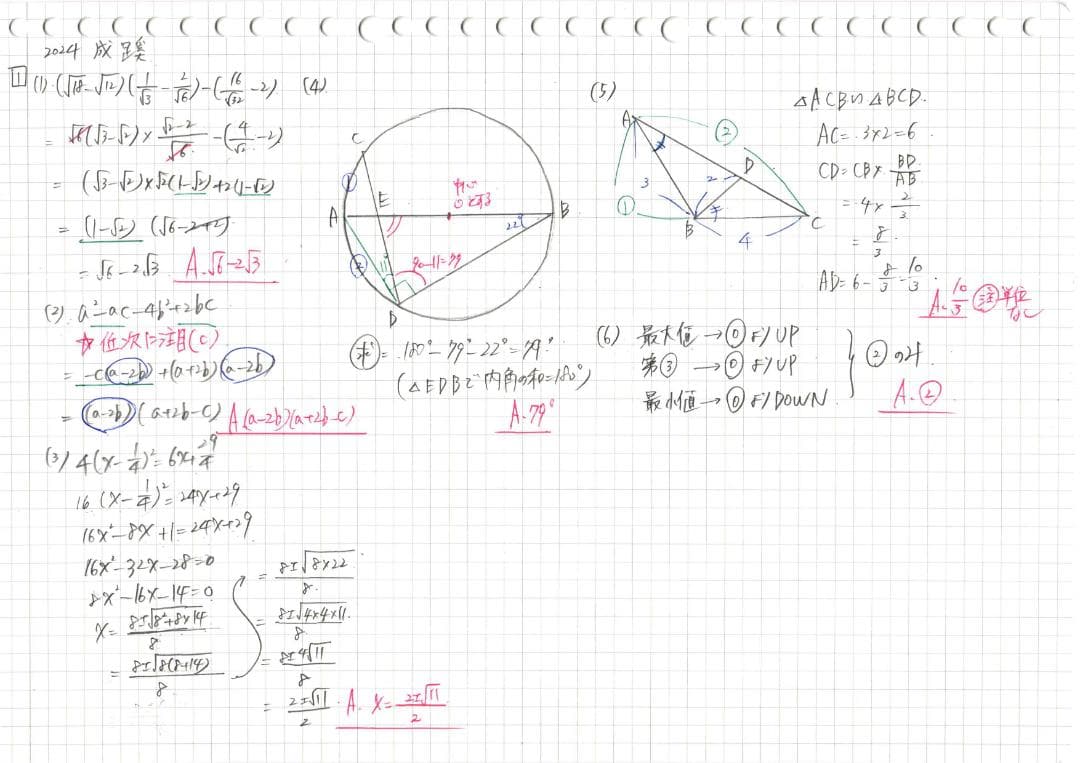 2024 成蹊
1 (1) (√18-√12)(1/√3 - 2/√6)-(16/√32 -2)
= √6(√3-√2)× (√2-2)/√6 -(4/√2 -2)
= (√3-√2)×√2(1-√2)+2(1-√2)
= (1-√2)(√6-2+2)
= √6-2√3 A.√6-2√3
(2) a²-ac-4b²+2bc
☆低次に注目(c)
= -c(a-2b)+(a+2b)(a-2b)
= (a-2b)(a+2b-c) A(a-2b)(a+2b-c)
(3) 4(x-1/4)²=6x+29/4
16(x-1/4)²=24x+29
16x²-8x+1=24x+29
16x²-32x-28=0
8x²-16x-14=0
x= (8±√(8²+8×14))/8
= (8±√(8(8+14)))/8
= (8±√(8×22))/8
= (8±√(4×4×11))/8
= (8±4√11)/8
= (2±√11)/2 A. x= (2±√11)/2
(4)
C
①
E
中心
Oとする
A
B
22°
②
11°
90-11=79
D
求 = 180°-79°-22°=79°
(△EDBで内角の和=180°)
A.79°
(5)
A
②
×
D
3
2
①
B
C
4
△ACB∽△BCD.
AC=3×2=6
CD=CB× BD/AB
=4× 2/3
= 8/3
AD=6- 8/3 = 10/3
A. 10/3 注 単位なし
(6) 最大値→⓪よりUP
第③ →⓪よりUP
最小値→⓪よりDOWN
②のみ
A.②